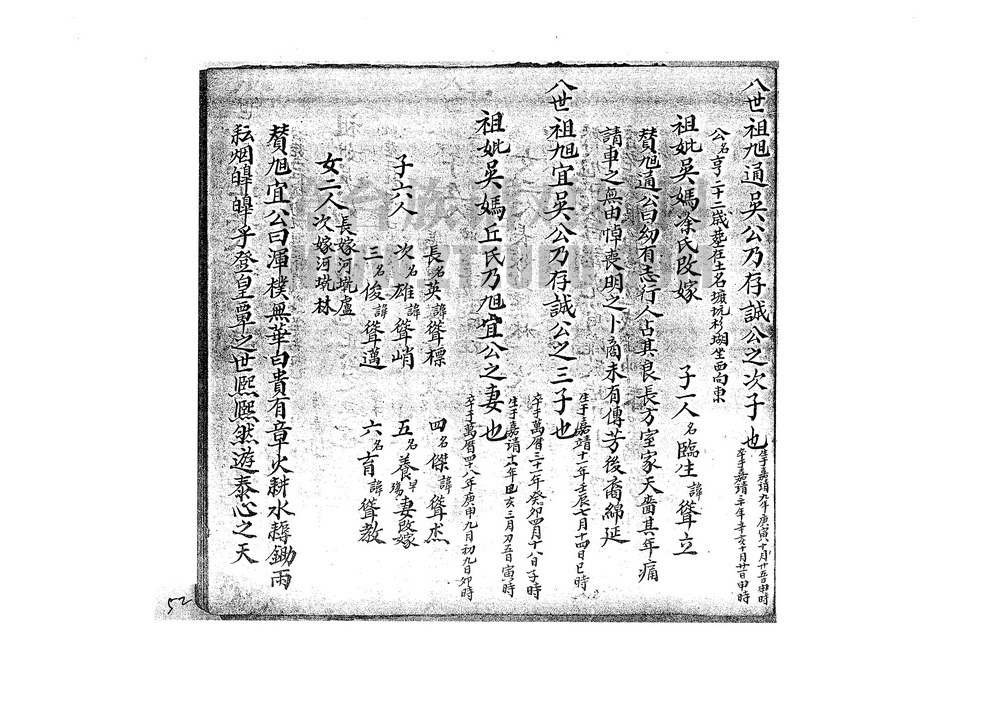 八世祖旭通吳公乃存誠公之次子也
生于嘉靖九年庚寅十月廿五日申時
卒于嘉靖三十年辛亥十月廿一日申時
公名亨二十二歲葬在土名壙坑杉坳坐西向東
祖妣吳媽余氏改嫁 子一人名臨生諱聳立
贊旭通公曰幼有志行人占其良長方室家天嗇其年痛
請車之無由悼喪明之卜商未有傳芳後裔綿延
八世祖旭宜吳公乃存誠公之三子也
生于嘉靖十一年壬辰七月十四日巳時
卒于萬曆三十一年癸卯四月十八日子時
祖妣吳媽丘氏乃旭宜公之妻也
生于嘉靖十八年己亥三月初五日寅時
卒于萬曆四十八年庚申九月初九日卯時
子六人
長名英諱聳標 四名傑諱聳杰
次名雄諱聳峭 五名養早殤妻改嫁
三名俊諱聳邁 六名育諱聳教
女二人
長嫁河坑盧
次嫁河坑林
贊旭宜公曰渾樸無華白賁有章火耕水耨鋤雨
耘烟皥皥乎登皇覃之世熙熙然遊泰心之天
52